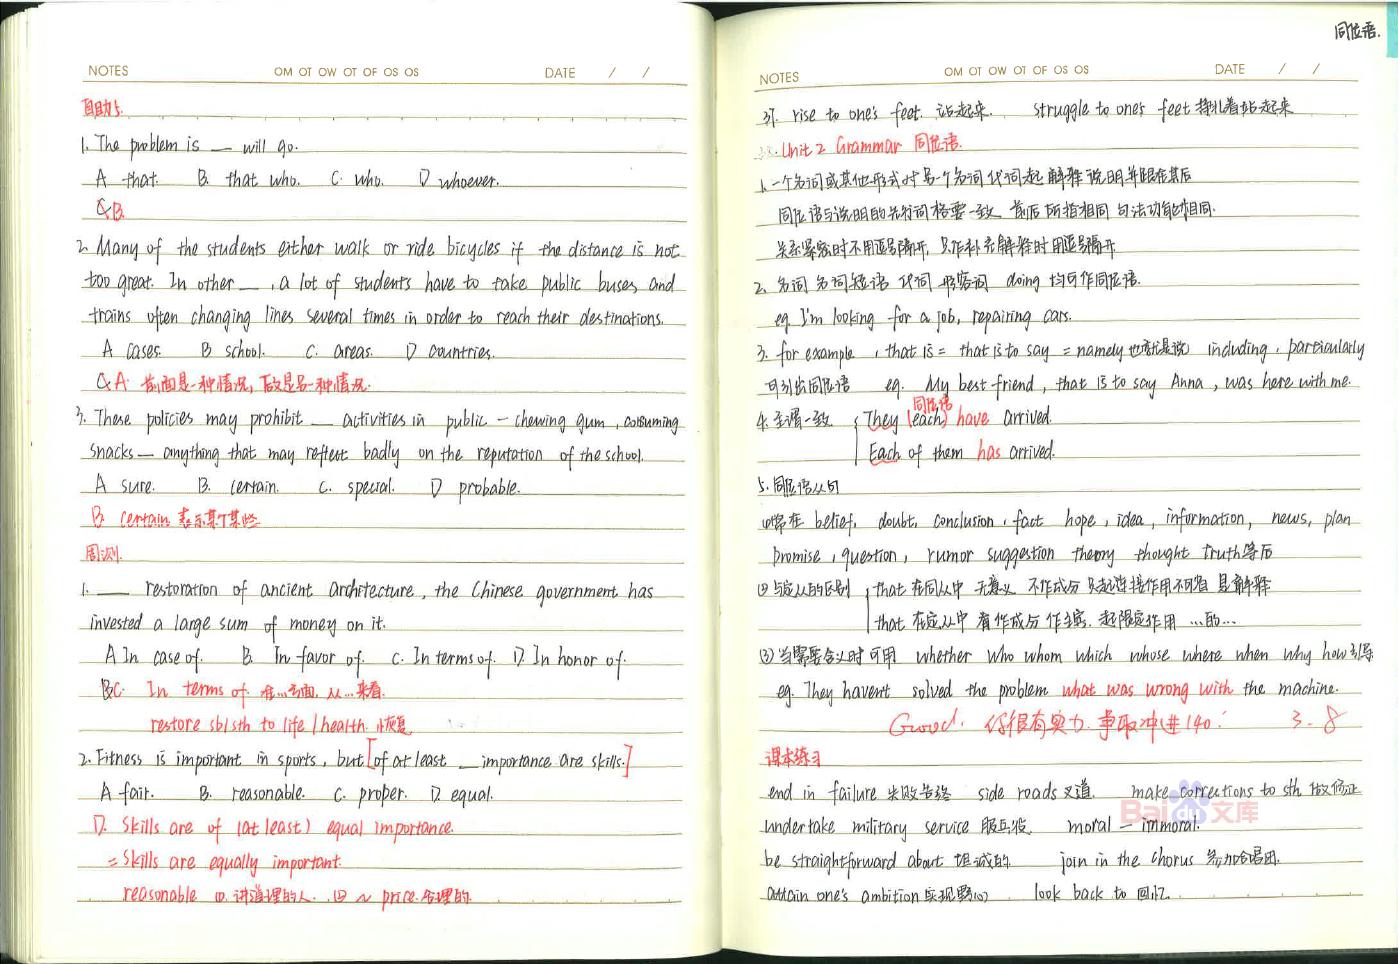 NOTES OM OT OW OT OF OS OS DATE / /
自助5.
1. The problem is __ will go.
A that. B. that who. C. who. D whoever.
C B.
2. Many of the students either walk or ride bicycles if the distance is not
too great. In other __, a lot of students have to take public buses and
trains often changing lines several times in order to reach their destinations.
A cases. B school. C. areas. D countries.
C A. 前面是一种情况, 下句是另一种情况.
3. These policies may prohibit __ activities in public – chewing gum, consuming
snacks — anything that may reflect badly on the reputation of the school.
A sure. B. certain. C. special. D probable.
B. certain 表示某个某些
周测.
1. __ restoration of ancient architecture, the Chinese government has
invested a large sum of money on it.
A In case of. B. In favor of. C. In terms of. D. In honor of.
B C. In terms of. 在…方面, 从…来看.
restore sb/sth to life / health. 恢复
2. Fitness is important in sports, but [of at least __ importance are skills.]
A fair. B. reasonable. C. proper. D. equal.
D. Skills are of (at least) equal importance.
= Skills are equally important.
reasonable ①. 讲道理的人. ② ~ price. 合理的.
同位语.
NOTES OM OT OW OT OF OS OS DATE / /
37. rise to one's feet. 站起来. struggle to one's feet 挣扎着站起来
Unit 2 Grammar 同位语.
1. 一个名词或其他形式对另一个名词代词起解释说明并跟在其后
同位语与说明的先行词格要一致 前后所指相同 句法功能相同.
关系紧密时不用逗号隔开, 只作补充解释时用逗号隔开
2. 名词 名词短语 代词 形容词 doing 均可作同位语.
eg. I'm looking for a job, repairing cars.
3. for example, that is = that is to say = namely 也就是说) including, particularly
可引出同位语 eg. My best friend, that is to say Anna, was here with me.
同位语
4. 主谓一致 They (each) have arrived.
Each of them has arrived.
5. 同位语从句
①常在 belief, doubt, conclusion, fact hope, idea, information, news, plan
promise, question, rumor suggestion theory thought truth等后
②与定从的区别 that 在同从中 无意义 不作成分 只起连接作用不可省 是解释
that 在定从中 有作成分 作主宾. 起限定作用 …的…
③当需要含义时可用 whether who whom which whose where when why how引导.
eg. They haven't solved the problem what was wrong with the machine.
Good. 你很有实力. 争取冲进140! 3.8
课本练习
end in failure 失败告终 side roads 叉道. make corrections to sth 做修正
undertake military service 服兵役 moral — immoral.
be straightforward about 坦诚的 join in the chorus 参加合唱团.
attain one's ambition 实现野心 look back to 回忆.
Baidu文库